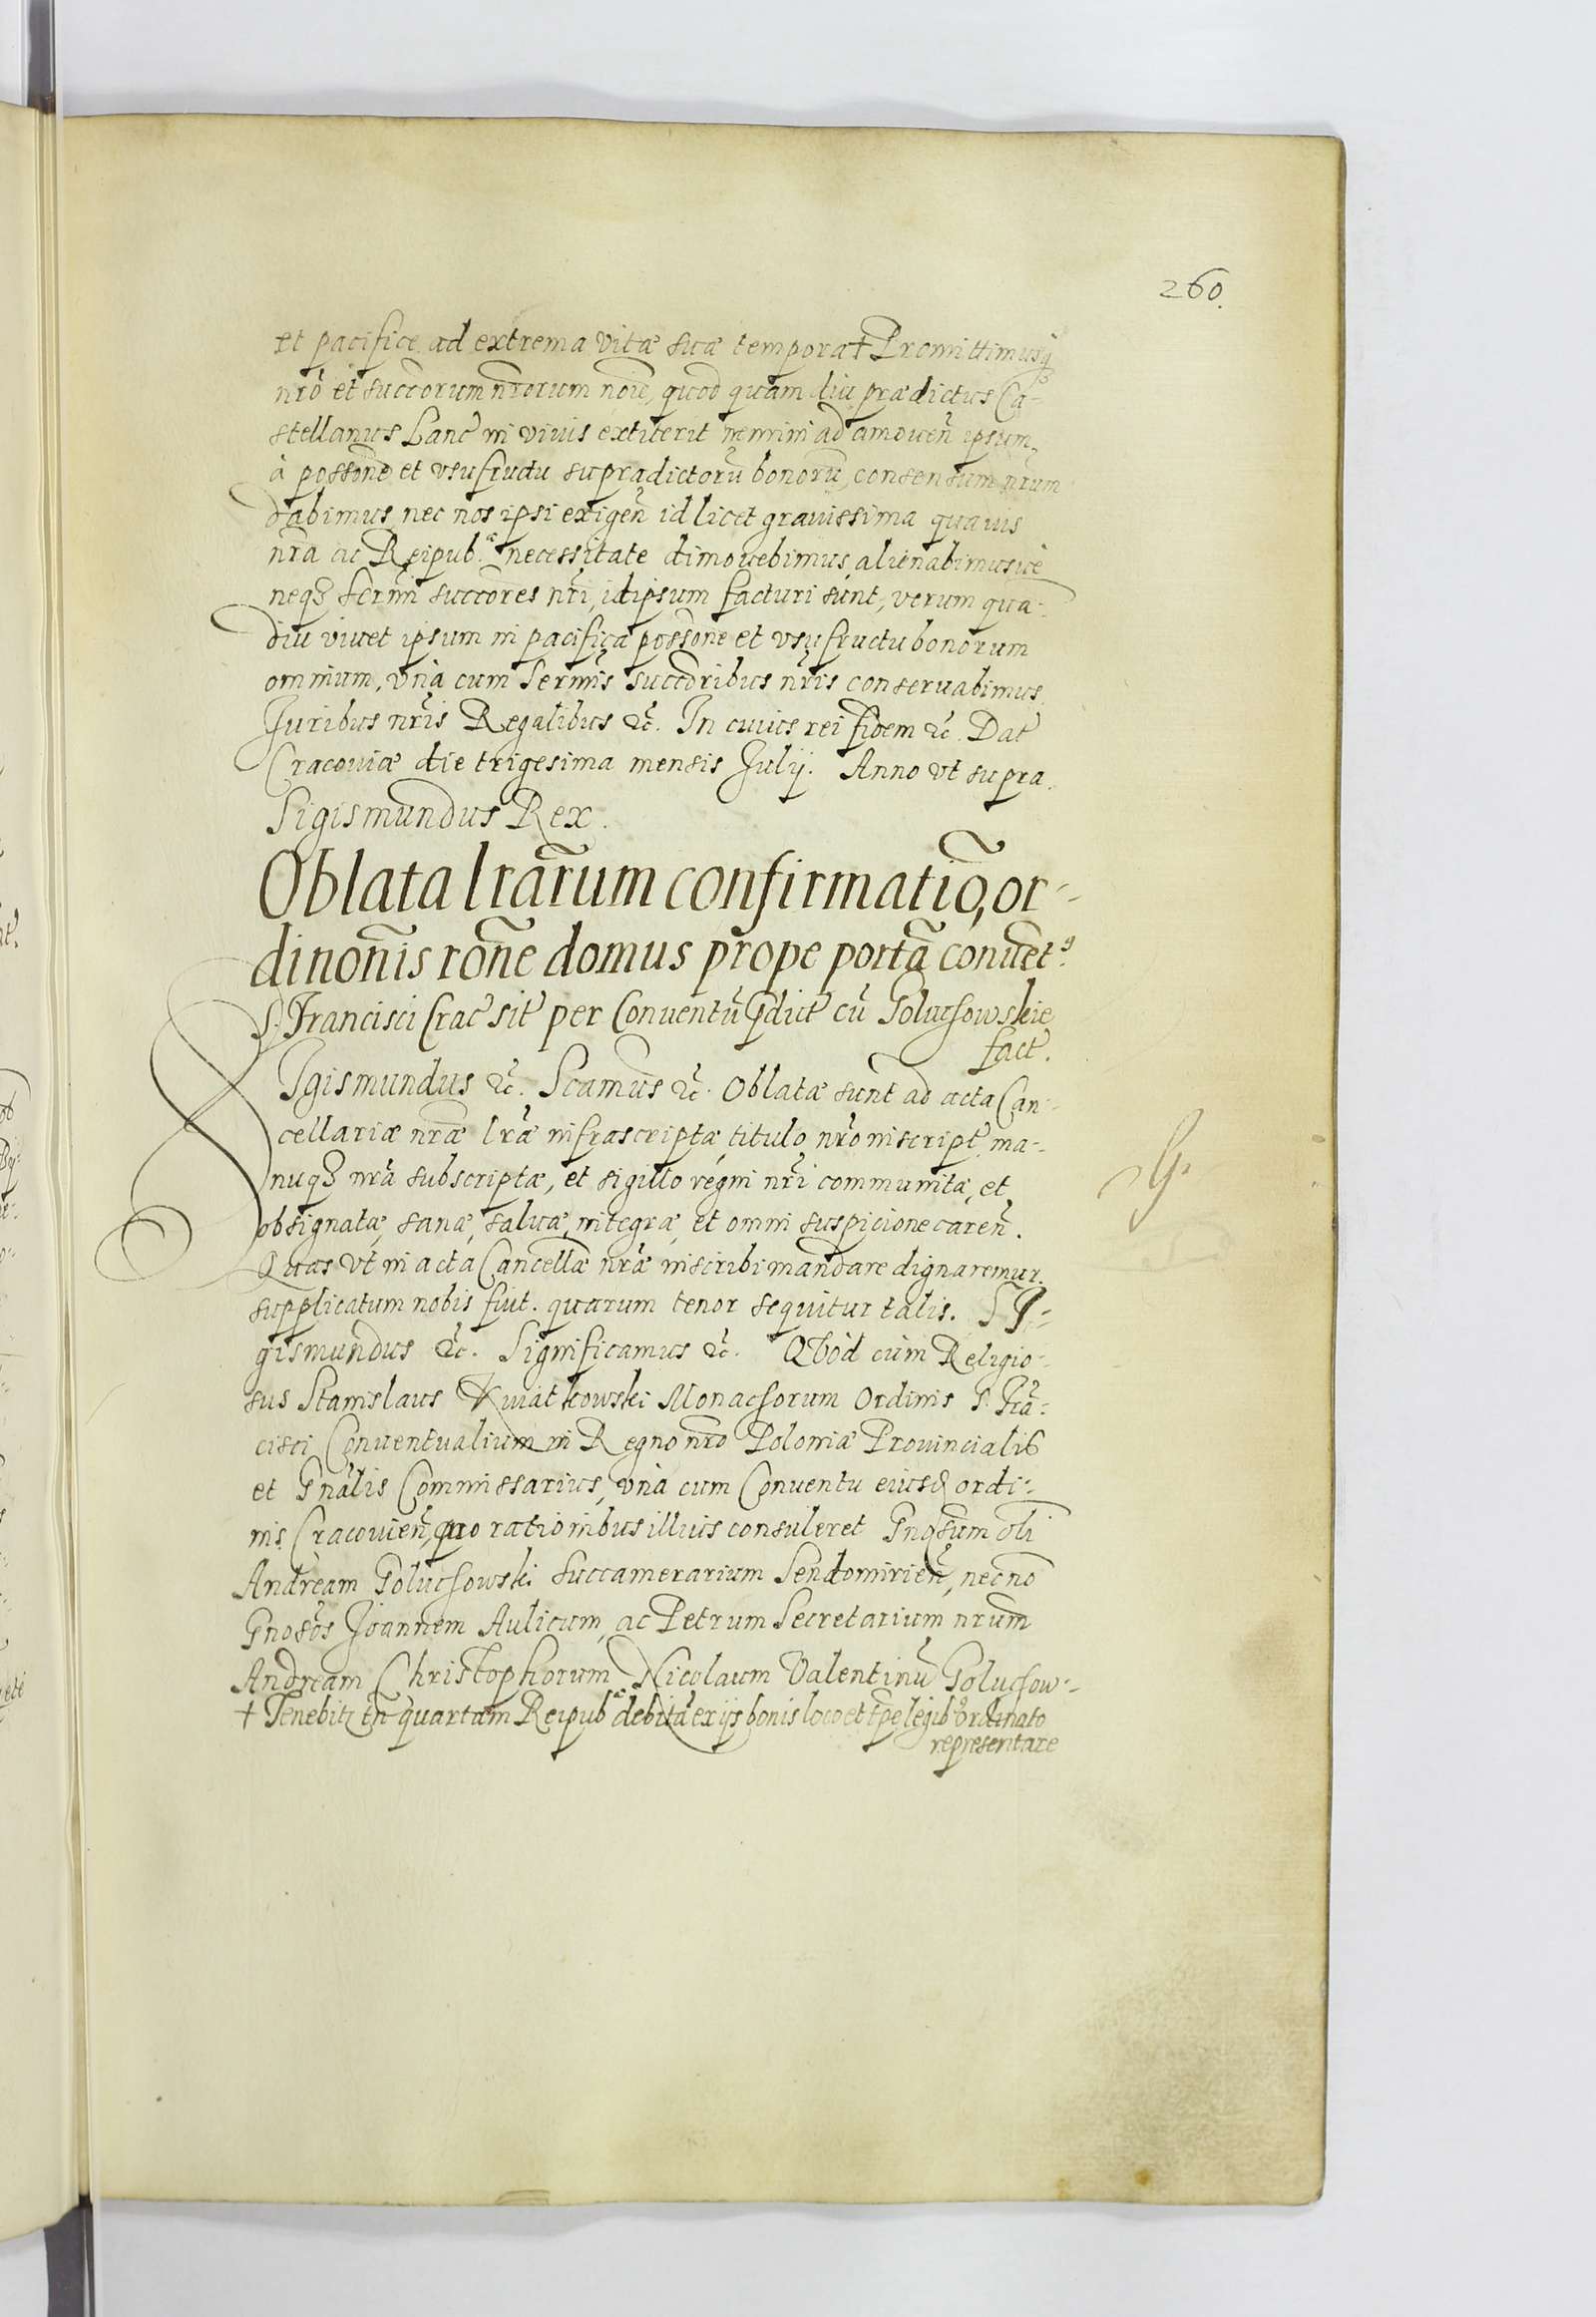 260.
et pacifice ad extrema vitæ suæ tempora + Promittimusq́
nrõ et succorum nrorum noiẽ, quod quam diu prædictus Ca-
stellanus Lanc̃ in viuis extiterit nemini ad amouen̄ ipsum
à possone et vsufructu supradictorũ bonorũ, consensum nrum
dabimus, nec nos ipsi exigen̄ id licet grauissima quauis
nra ac Reipub.æ necessitate dimouebimus, alienabimusue
neqȝ sermi succores nri, idipsum facturi sunt, verum qua-
diu viuet ipsum in pacifica possone et vsufructu bonorum
omnium, vnà cum Sermis succoribus nris conseruabimus
Juribus nris Regalibus &c̃. In cuius rei fidem &c̃. Dat̃
Cracouiæ die trigesima mensis Julij. Anno vt supra.
Sigismundus Rex.
Oblata lrarum confirmatio, or-
dinonis rone domus prope portã conuet9
S. Francisci Crac̃ sit̃ per Conuentũ pdict̃ cũ Goluchowskie
fact̃.
SIgismundus &c̃. Scamus &c̃. Oblatæ sunt ad acta Can-
cellariæ nræ lræ infrascriptæ, titulo nro inscript̃, ma-
nuqȝ nra subscriptæ, et sigillo regni nri communitæ, et
obsignatæ, sanæ, saluæ, integræ, et omni suspicione caren̄.
Quas vt in acta Cancellæ nræ inscribi mandare dignaremur
supplicatum nobis fuit. quarum tenor sequitur talis. SI-
gismundus &c̃. Significamus &c̃. Qvòd cùm Religio-
sus Stanislaus Kwiatkowski Monachorum Ordinis S. Frã-
cisci Conuentualium in Regno nro Poloniæ Prouincialis
et Gnalis Commissarius, vnà cum Conuentu eiusd ordi-
nis Cracouien̄, quo rationibus illius consuleret Gnosum oli
Andream Goluchowski Succamerarium Sendomirien̄, necno
Gnosos Joannem Aulicum, ac Petrum Secretarium nrum
Andream Christophorum Nicolaum Valentinũ Goluchow-
+ Tenebitr tñ quartam Reipubæ debitã ex ijs bonis loco et tpe legib9 ordinato
representare